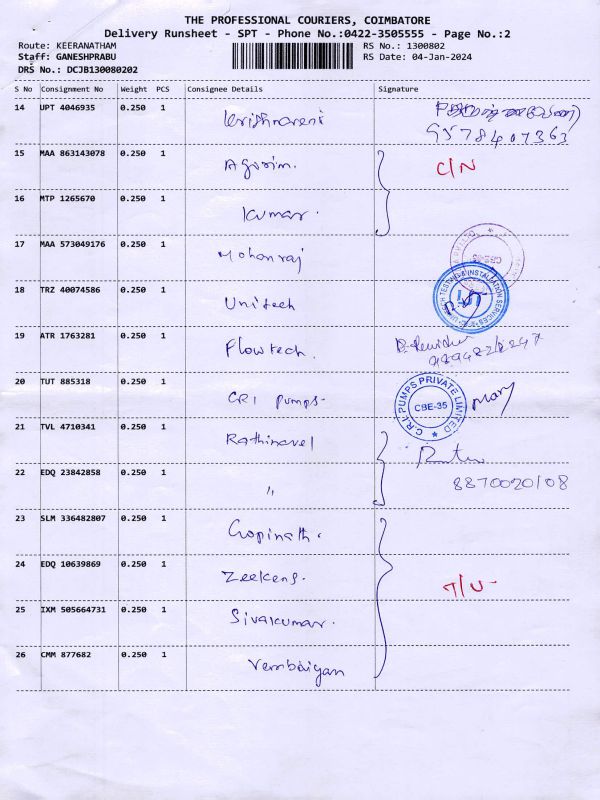 THE PROFESSIONAL COURIERS, COIMBATORE
Delivery Runsheet - SPT - Phone No.:0422-3505555 - Page No.:2
Route: KEERANATHAM RS No.: 1300802
Staff: GANESHPRABU RS Date: 04-Jan-2024
DRS No.: DCJB130080202
S No Consignment No Weight PCS Consignee Details Signature
14 UPT 4046935 0.250 1 Krishnaveni
9578407363
15 MAA 863143078 0.250 1 C/N
16 MTP 1265670 0.250 1 Kumar.
17 MAA 573049176 0.250 1 Mohanraj
18 TRZ 40074586 0.250 1 Unitech
UNITECH TESTING & INSTALLATION SERVICES
19 ATR 1763281 0.250 1 Flowtech.
20 TUT 885318 0.250 1 CRI Pumps-
C.R.I. PUMPS PRIVATE LIMITED
CBE-35
Mary
21 TVL 4710341 0.250 1 Rathinavel
22 EDQ 23842858 0.250 1 "
8870020108
23 SLM 336482807 0.250 1 Gopinath.
24 EDQ 10639869 0.250 1 Zeekens.
25 IXM 505664731 0.250 1 Sivakumar.
26 CMM 877682 0.250 1 Vembaiyan